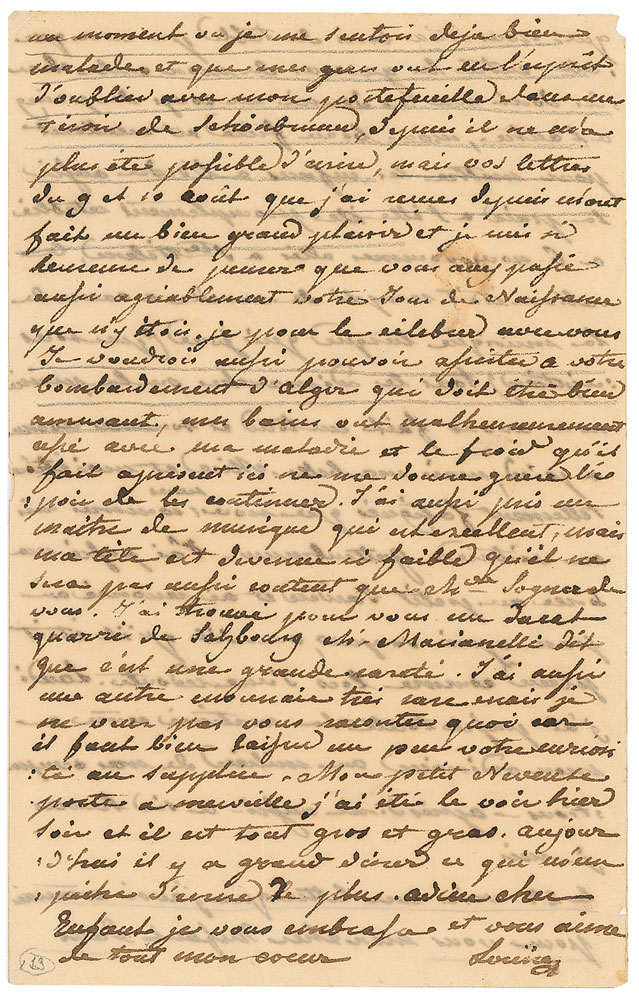 un moment ou je me sentois deja bien
malade et que mes gens ont eu l'esprit
d'oublier avec mon portefeuille dans un
tiroir de Schönbrunn, depuis il ne m'a
plus été possible d'ecrire, mais vos lettres
du 9 et 10 août que j'ai reçues depuis m'ont
fait un bien grand plaisir et je suis si
heureuse de penser que vous ayez passé
aussi agréablement votre Jour de Naissance
que n'y étois-je pour le célébrer avec vous
Je voudrois aussi pouvoir assister a votre
bombardement d'Alger qui doit être bien
amusant, mes bains ont malheureusement
cessé avec ma maladie et le froid qu'il
fait apresent ici ne me donne guere l'es
: poir de les continuer. J'ai aussi pris un
maitre de musique qui est excellent, mais
ma tête est devenue si faible qu'il ne
sera pas aussi content que Sogner de
vous. J'ai trouvé pour vous un Ducat
quarré de Salzbourg Marianelli dit
que c'est une grande rareté. J'ai aussi
une autre monnaie très rare mais je
ne veux pas vous raconter quoi car
il faut bien laisser un peu votre curiosi
: té au supplice. Mon petit Neveu se
porte a merveille j'ai été le voir hier
soir et il est tout gros et gras. aujour
: d'hui il y a grand diner ce qui m'em
: pêche d'ecrire de plus. adieu cher
Enfant je vous embrasse et vous aime
de tout mon coeur Louise
33